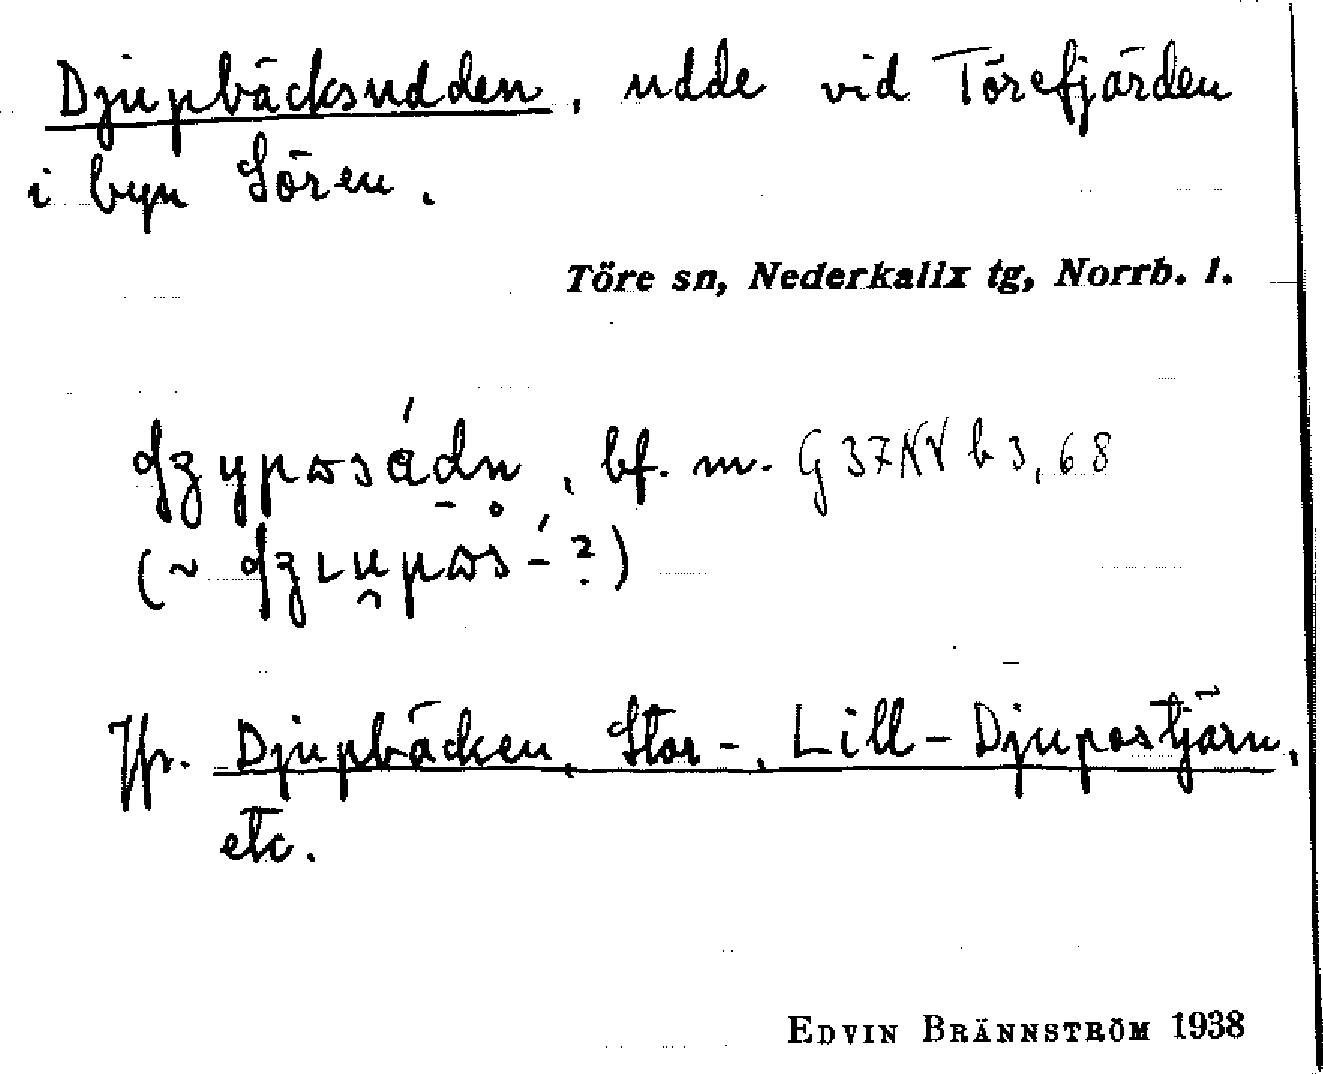 Djupbäcksudden, udde vid Törefjärden
i byn Sören.
Töre sn, Nederkalix tg, Norrb. l.
bf. m. G 37 NV b 3, 68
Jfr. Djupbäcken, Stor-, Lill-Djupostjärn,
etc.
EDVIN BRÄNNSTRÖM 1938